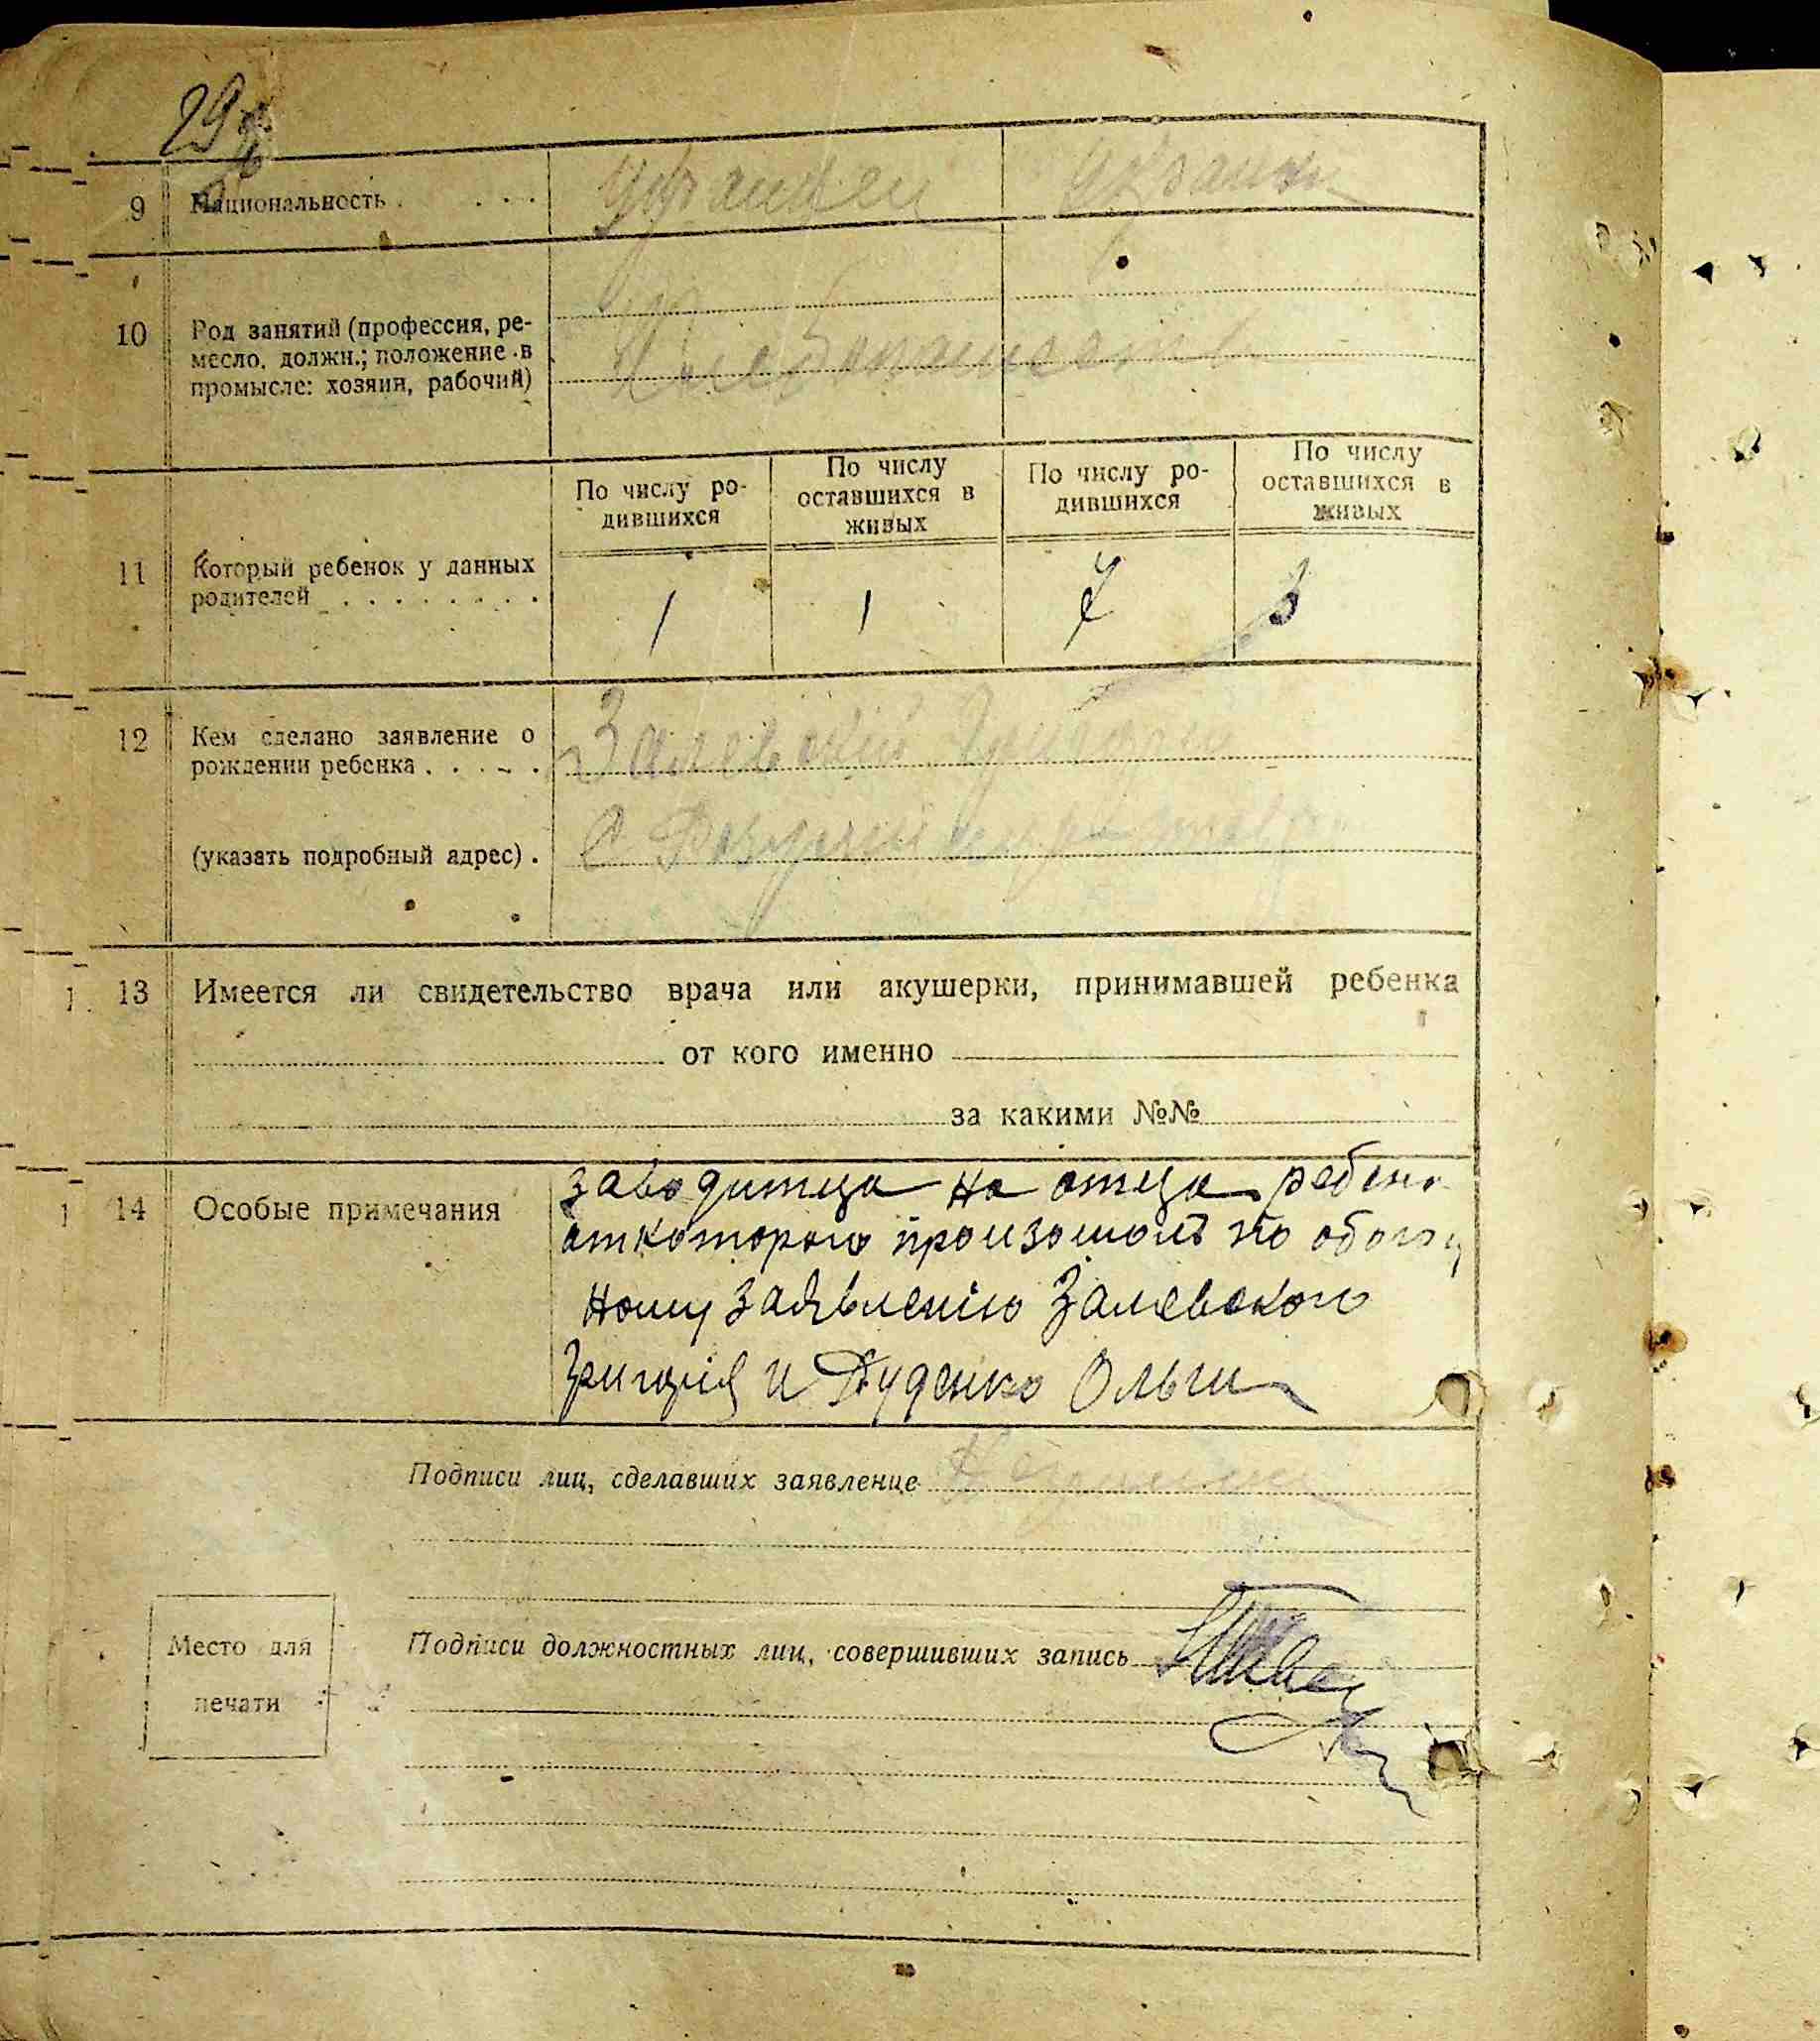 29
9 Национальность . . . . Украинец Украин
10 Род занятий (профессия, ре-
месло, должн.; положение в
промысле: хозяин, рабочий)
Хлебопашество
По числу ро-
дившихся
По числу
оставшихся в
живых
По числу ро-
дившихся
По числу
оставшихся в
живых
11 Который ребенок у данных
родителей . . . . . . . .
1 1 3
12 Кем сделано заявление о
рождении ребенка . . . . .
Залевский Григорий
(указать подробный адрес) .
13 Имеется ли свидетельство врача или акушерки, принимавшей ребенка
от кого именно
за какими №№
14 Особые примечания
заводитца на отца ребен
от которого произошол по обоюд
ному заявлению Залевского
Григорія и Дуденко Ольги
Подписи лиц, сделавших заявление
Место для
печати
Подписи должностных лиц, совершивших запись